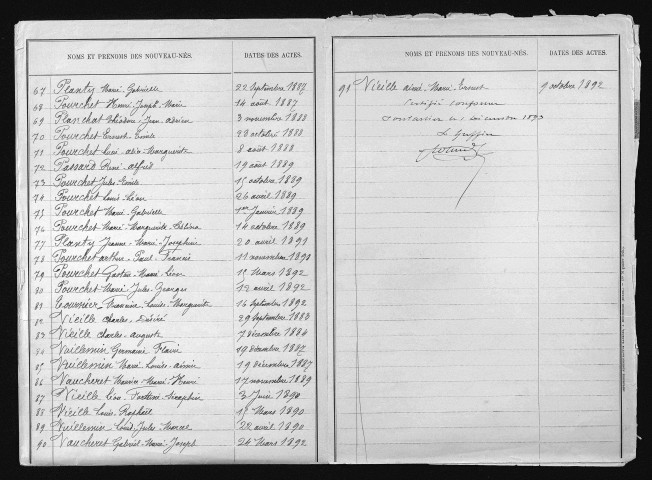 NOMS ET PRÉNOMS DES NOUVEAU-NÉS. DATES DES ACTES.
67 Planty Marie Gabrielle 22 Septembre 1887
68 Pourchet Henri Joseph Marie 14 août 1887
69 Planchat Théodore Jean adrien 3 novembre 1888
70 Pourchet Ernest Emile 23 octobre 1888
71 Pourchet Lucie alix Marguerite 8 août 1888
72 Passard René alfred 19 août 1889
73 Pourchet Jules Emile 15 octobre 1889
74 Pourchet Louis Léon 26 avril 1889
75 Pourchet Marie Gabrielle 1er Janvier 1889
76 Pourchet Marie Marguerite 14 octobre 1889
77 Planty Jeanne Marie Joséphine 20 avril 1891
78 Pourchet arthur Paul Francis 11 novembre 1890
79 Pourchet Gaston Marie Léon 15 Mars 1892
80 Pourchet Marie Jules Georges 12 avril 1892
81 Francine Louise Marguerite 16 Septembre 1892
82 Vieille Charles Désiré 29 Septembre 1883
83 Vieille Charles auguste 7 décembre 1884
84 Vuillemin Germaine Flavie 19 décembre 1887
85 Vuillemin Marie Louise 19 décembre 1887
86 Vaucheret Maurice Marie Henri 17 novembre 1889
87 Vieille Léon Séraphin 3 Juin 1890
88 Vieille Louis Raphaël 15 Mars 1890
89 Vuillemin Louis Jules Marcel 22 avril 1890
90 Vaucheret Gabriel Marie Joseph 24 Mars 1892
NOMS ET PRÉNOMS DES NOUVEAU-NÉS. DATES DES ACTES.
91 Vieille aimé Marie Ernest 9 octobre 1892
Certifié conforme
Pontarlier 1893
Le Greffier